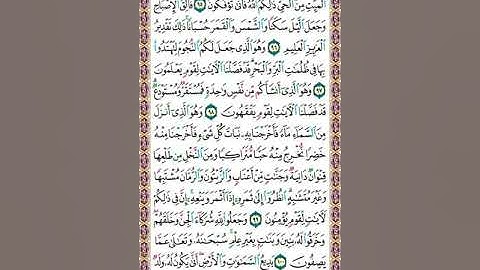 الْمَيِّتِ مِنَ الْحَيِّ ذَٰلِكُمُ اللَّهُ فَأَنَّىٰ تُؤْفَكُونَ ٩٥ فَالِقُ الْإِصْبَاحِ
وَجَعَلَ اللَّيْلَ سَكَنًا وَالشَّمْسَ وَالْقَمَرَ حُسْبَانًا ذَٰلِكَ تَقْدِيرُ
الْعَزِيزِ الْعَلِيمِ ٩٦ وَهُوَ الَّذِي جَعَلَ لَكُمُ النُّجُومَ لِتَهْتَدُوا
بِهَا فِي ظُلُمَاتِ الْبَرِّ وَالْبَحْرِ قَدْ فَصَّلْنَا الْآيَاتِ لِقَوْمٍ يَعْلَمُونَ
٩٧ وَهُوَ الَّذِي أَنْشَأَكُمْ مِنْ نَفْسٍ وَاحِدَةٍ فَمُسْتَقَرٌّ وَمُسْتَوْدَعٌ
قَدْ فَصَّلْنَا الْآيَاتِ لِقَوْمٍ يَفْقَهُونَ ٩٨ وَهُوَ الَّذِي أَنْزَلَ
مِنَ السَّمَاءِ مَاءً فَأَخْرَجْنَا بِهِ نَبَاتَ كُلِّ شَيْءٍ فَأَخْرَجْنَا مِنْهُ
خَضِرًا نُخْرِجُ مِنْهُ حَبًّا مُتَرَاكِبًا وَمِنَ النَّخْلِ مِنْ طَلْعِهَا
قِنْوَانٌ دَانِيَةٌ وَجَنَّاتٍ مِنْ أَعْنَابٍ وَالزَّيْتُونَ وَالرُّمَّانَ مُشْتَبِهًا
وَغَيْرَ مُتَشَابِهٍ انْظُرُوا إِلَىٰ ثَمَرِهِ إِذَا أَثْمَرَ وَيَنْعِهِ إِنَّ فِي ذَٰلِكُمْ
لَآيَاتٍ لِقَوْمٍ يُؤْمِنُونَ ٩٩ وَجَعَلُوا لِلَّهِ شُرَكَاءَ الْجِنَّ وَخَلَقَهُمْ
وَخَرَقُوا لَهُ بَنِينَ وَبَنَاتٍ بِغَيْرِ عِلْمٍ سُبْحَانَهُ وَتَعَالَىٰ عَمَّا
يَصِفُونَ ١٠٠ بَدِيعُ السَّمَاوَاتِ وَالْأَرْضِ أَنَّىٰ يَكُونُ لَهُ وَلَدٌ